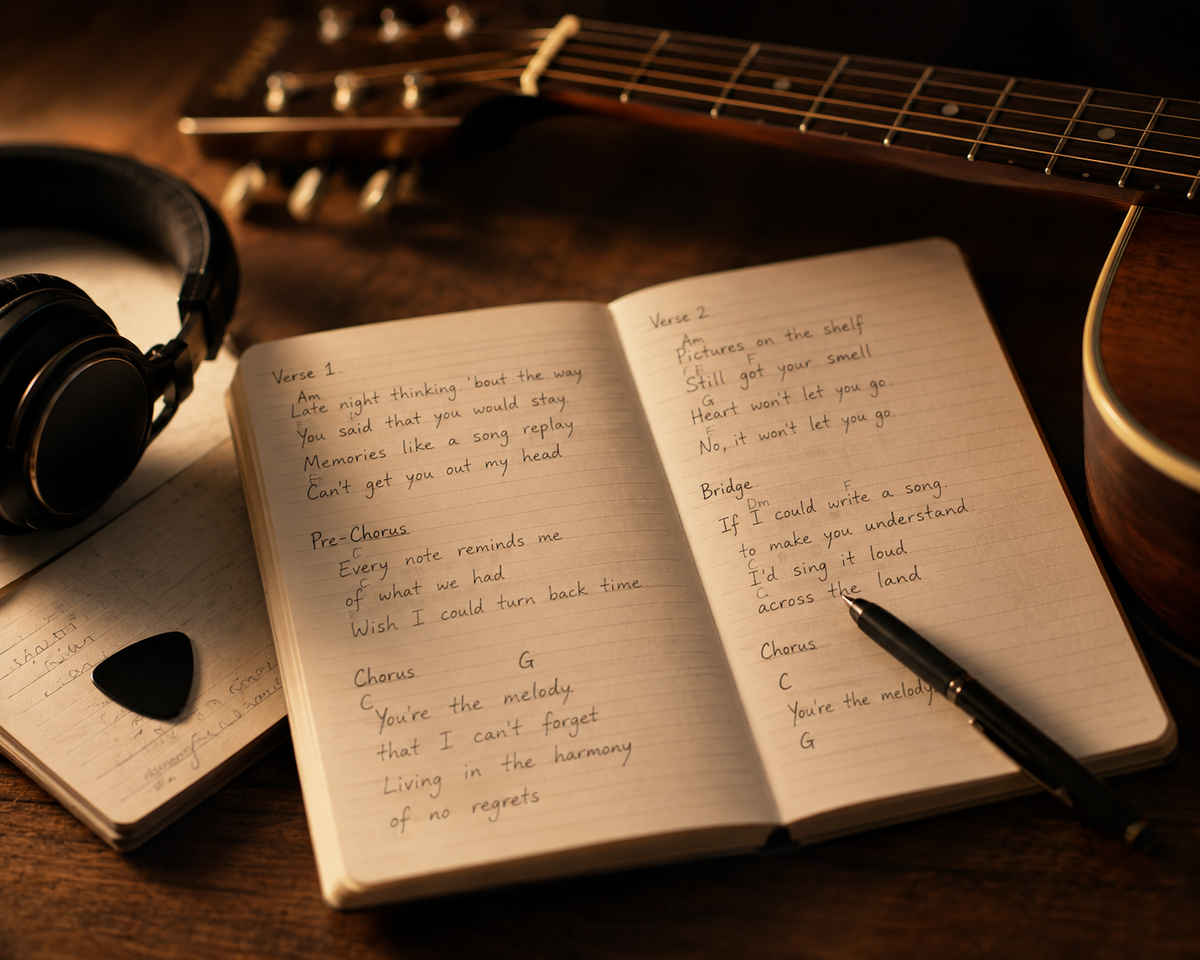 Verse 1
Am
Late night thinking 'bout the way
You said that you would stay.
Memories like a song replay
Can't get you out my head
Pre-Chorus
C
Every note reminds me
C
of what we had
Wish I could turn back time
Chorus
G
C
You're the melody.
that I can't forget
Living in the harmony
of no regrets
Verse 2
Am
Pictures on the shelf
F
Still got your smell
G
Heart won't let you go
F
No, it won't let you go.
Bridge
Dm F
If I could write a song.
to make you understand
C
I'd sing it loud
G
across the land
Chorus
C
You're the melody
G